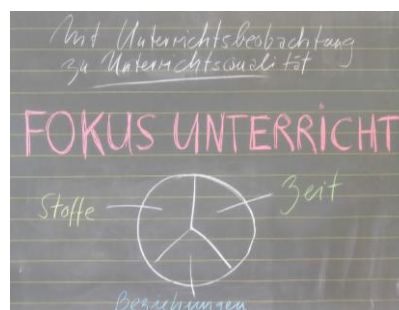 Mit Unterrichtsbeobachtung
zu Unterrichtsqualität
FOKUS UNTERRICHT
Stoffe
Zeit
Beziehungen